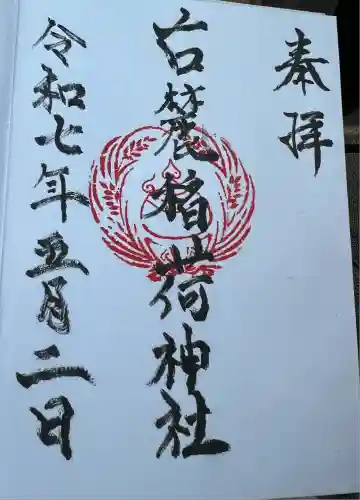 奉拝
石麓稲荷神社
令和七年五月二日